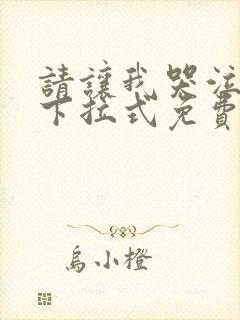 請讓我哭泣
下拉式免費
烏小橙